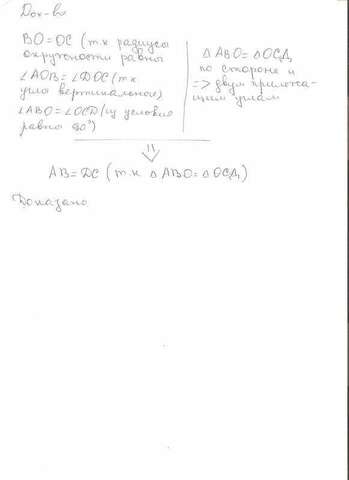 Док-во
BO = OC (т.к радиусы
окружности равны
∠AOB = ∠DOC (т к
углы вертикальные)
∠ABO = ∠OCD (из условия
равно 90°)
△ ABO = △ OCД
по стороне и
=> двум прилежа-
щим углам
⇓
AB = DC (т.к △ ABO = △ OCД)
Доказано